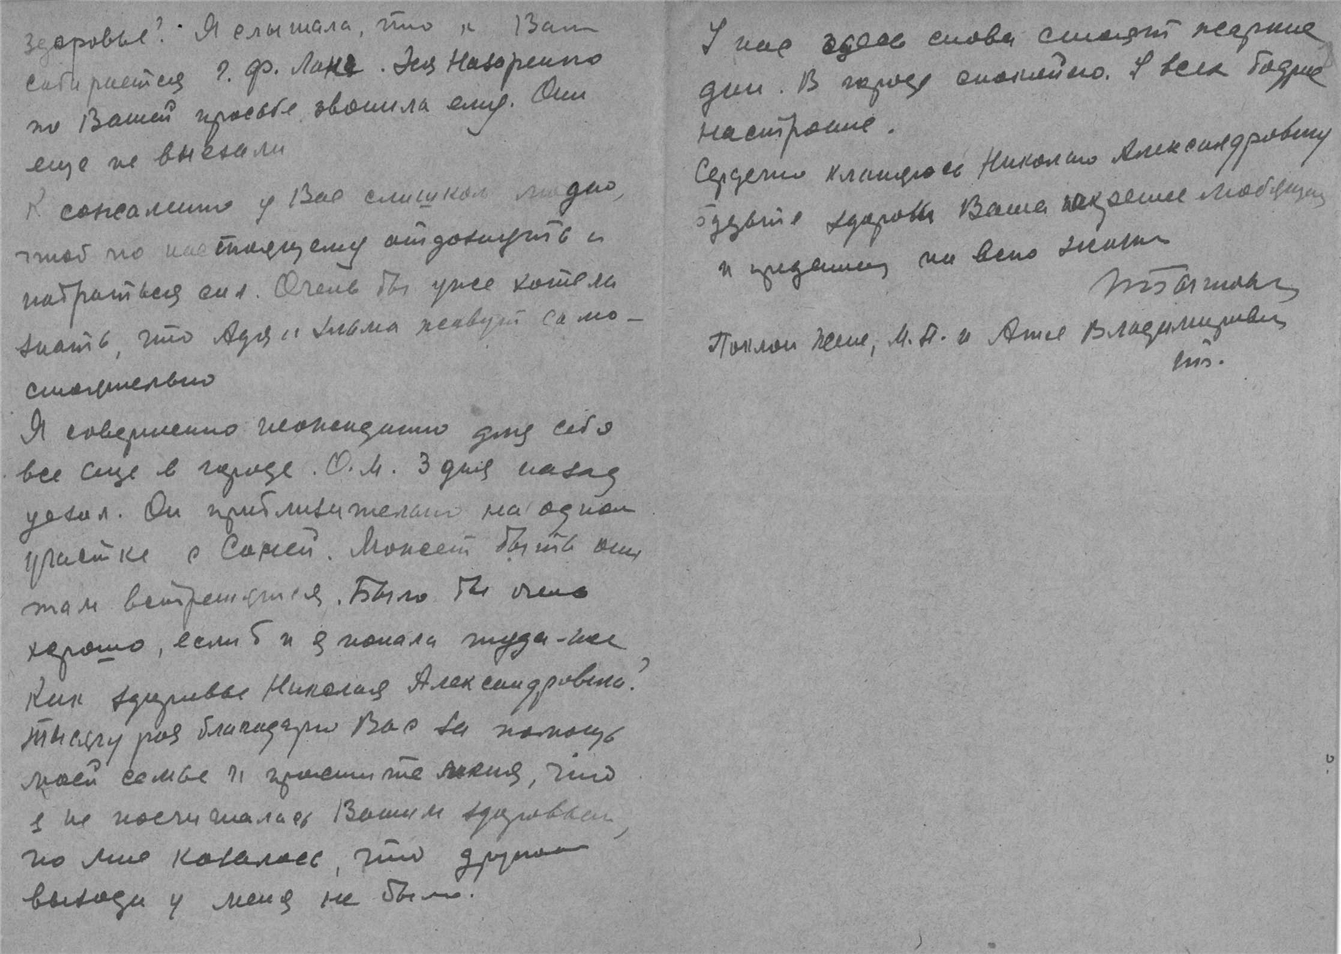 здоровье? Я слышала, что к Вам
собирается Г. Ф. Ланг. Зоя Назаренко
по Вашей просьбе звонила ему. Они
еще не выехали
К сожалению у Вас слишком людно,
чтоб по настоящему отдохнуть и
набраться сил. Очень бы уже хотела
знать, что Адя и мама живут само-
стоятельно
Я совершенно неожиданно для себя
все еще в городе. О.М. 3 дня назад
уехал. Он приблизительно на одном
участке с Саней. Может быть они
там встретятся. Было бы очень
хорошо, если б и я попала туда-же
Как здоровье Николая Александровича?
Тысячу раз благодарю Вас за помощь
моей семье и простите меня, что
я не посчиталась с Вашим здоровьем,
но мне казалось, что другого
выхода у меня не было.
У нас здесь снова стоят жаркие
дни. В городе спокойно. У всех бодрое
настроение.
Сердечно кланяюсь Николаю Александровичу
будьте здоровы Ваша искренне любящая
и преданная на всю жизнь
Поклон Жене, М.П. и Анне Владимировне